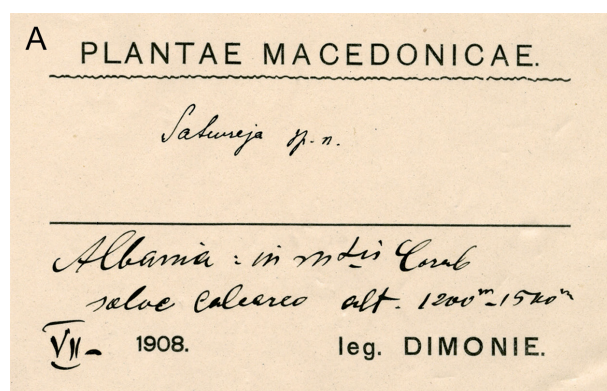 A
PLANTAE MACEDONICAE.
Satureja sp. n.
Albania : in mtis Corab
solve calcareo alt. 1200m-1500m
VII- 1908. leg. DIMONIE.